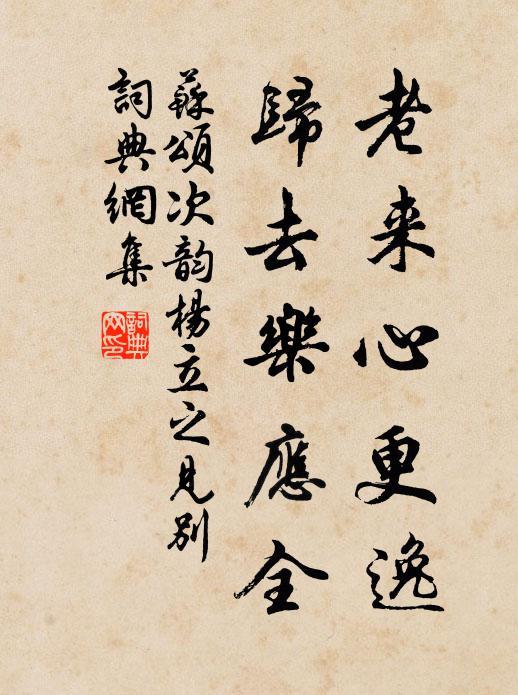 老来心更逸
歸去樂應全
蘇頌次韵楊立之見別
詞典網集
詞典
网印